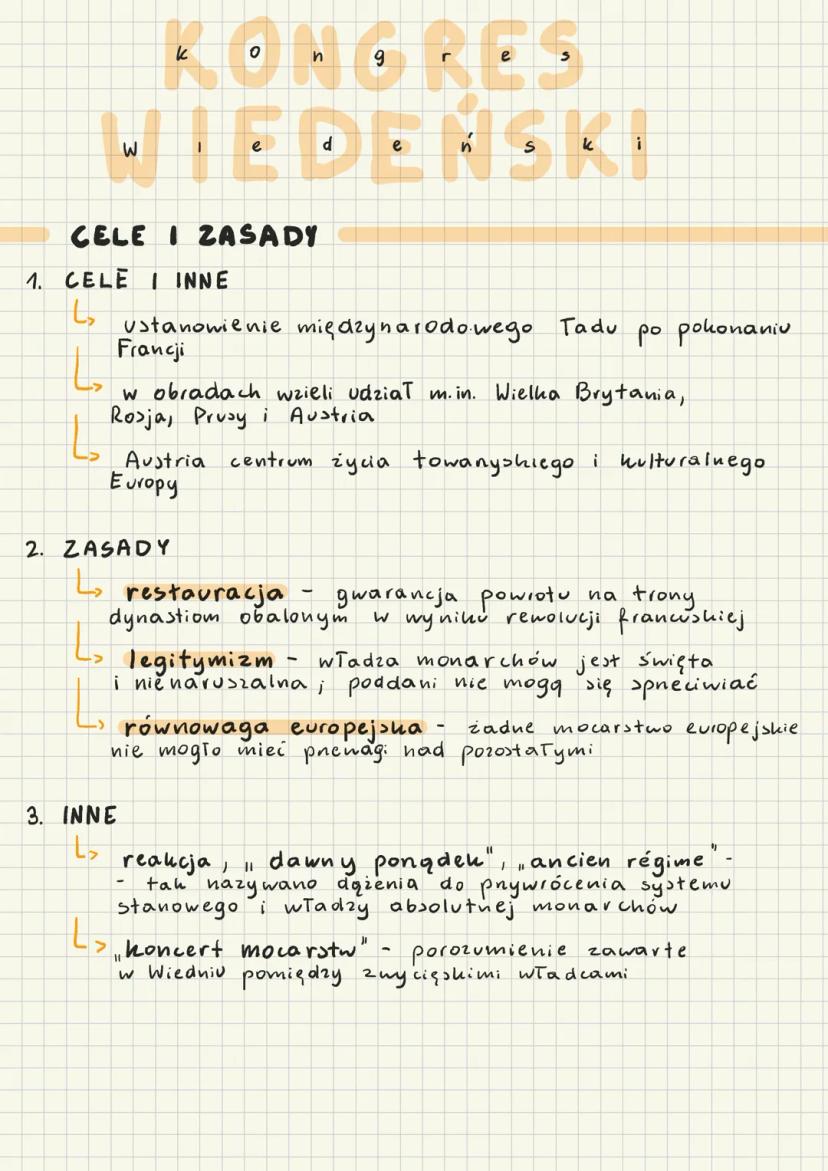 KONGRES
Kongres
WIEDEŃSKI
Wiedeński
CELE I ZASADY
1. CELE I INNE
ustanowienie międzynarodowego ładu po pokonaniu
Francji
w obradach wzieli udział m.in. Wielka Brytania,
Rosja, Prusy i Austria
Austria centrum życia towarzyskiego i kulturalnego
Europy
2. ZASADY
restauracja - gwarancja powrotu na trony
dynastiom obalonym w wyniku rewolucji francuskiej
legitymizm - władza monarchów jest święta
i nienaruszalna; poddani nie mogą się sprzeciwiać
równowaga europejska - żadne mocarstwo europejskie
nie mogło mieć przewagi nad pozostałymi
3. INNE
reakcja, „dawny porządek", „ancien régime" -
- tak nazywano dążenia do przywrócenia systemu
stanowego i władzy absolutnej monarchów
„koncert mocarstw" - porozumienie zawarte
w Wiedniu pomiędzy zwycięskimi władcami